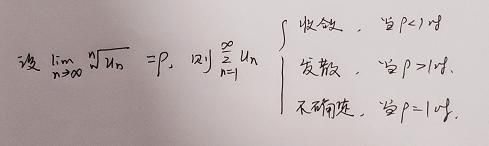 设 lim_{n→∞} ⁿ√u_n = ρ, 则 ∑_{n=1}^{∞} u_n { 收敛, 当ρ<1时
发散, 当ρ>1时.
不确定, 当ρ=1时.